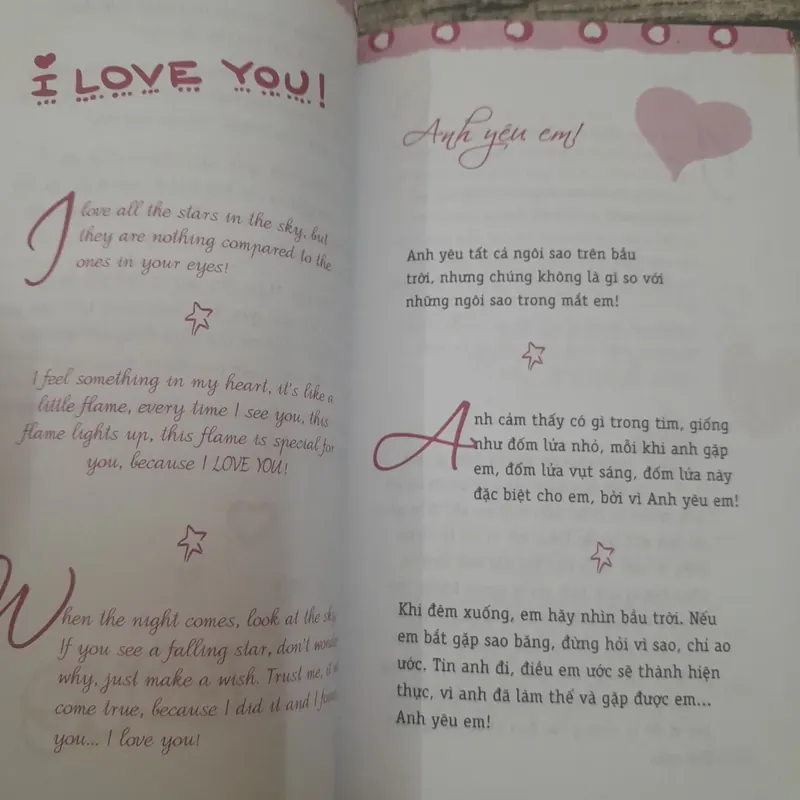 I LOVE YOU!
I love all the stars in the sky, but
they are nothing compared to the
ones in your eyes!
I feel something in my heart, it's like a
little flame, every time I see you, this
flame lights up, this flame is special for
you, because I LOVE YOU!
When the night comes, look at the sky.
If you see a falling star, don't wonder
why, just make a wish. Trust me, it
come true, because I did it and I
you... I love you!
Anh yêu em!
Anh yêu tất cả ngôi sao trên bầu
trời, nhưng chúng không là gì so với
những ngôi sao trong mắt em!
Anh cảm thấy có gì trong tim, giống
như đốm lửa nhỏ, mỗi khi anh gặp
em, đốm lửa vụt sáng, đốm lửa này
đặc biệt cho em, bởi vì Anh yêu em!
Khi đêm xuống, em hãy nhìn bầu trời. Nếu
em bắt gặp sao băng, đừng hỏi vì sao, chỉ ao
ước. Tin anh đi, điều em ước sẽ thành hiện
thực, vì anh đã làm thế và gặp được em...
Anh yêu em!